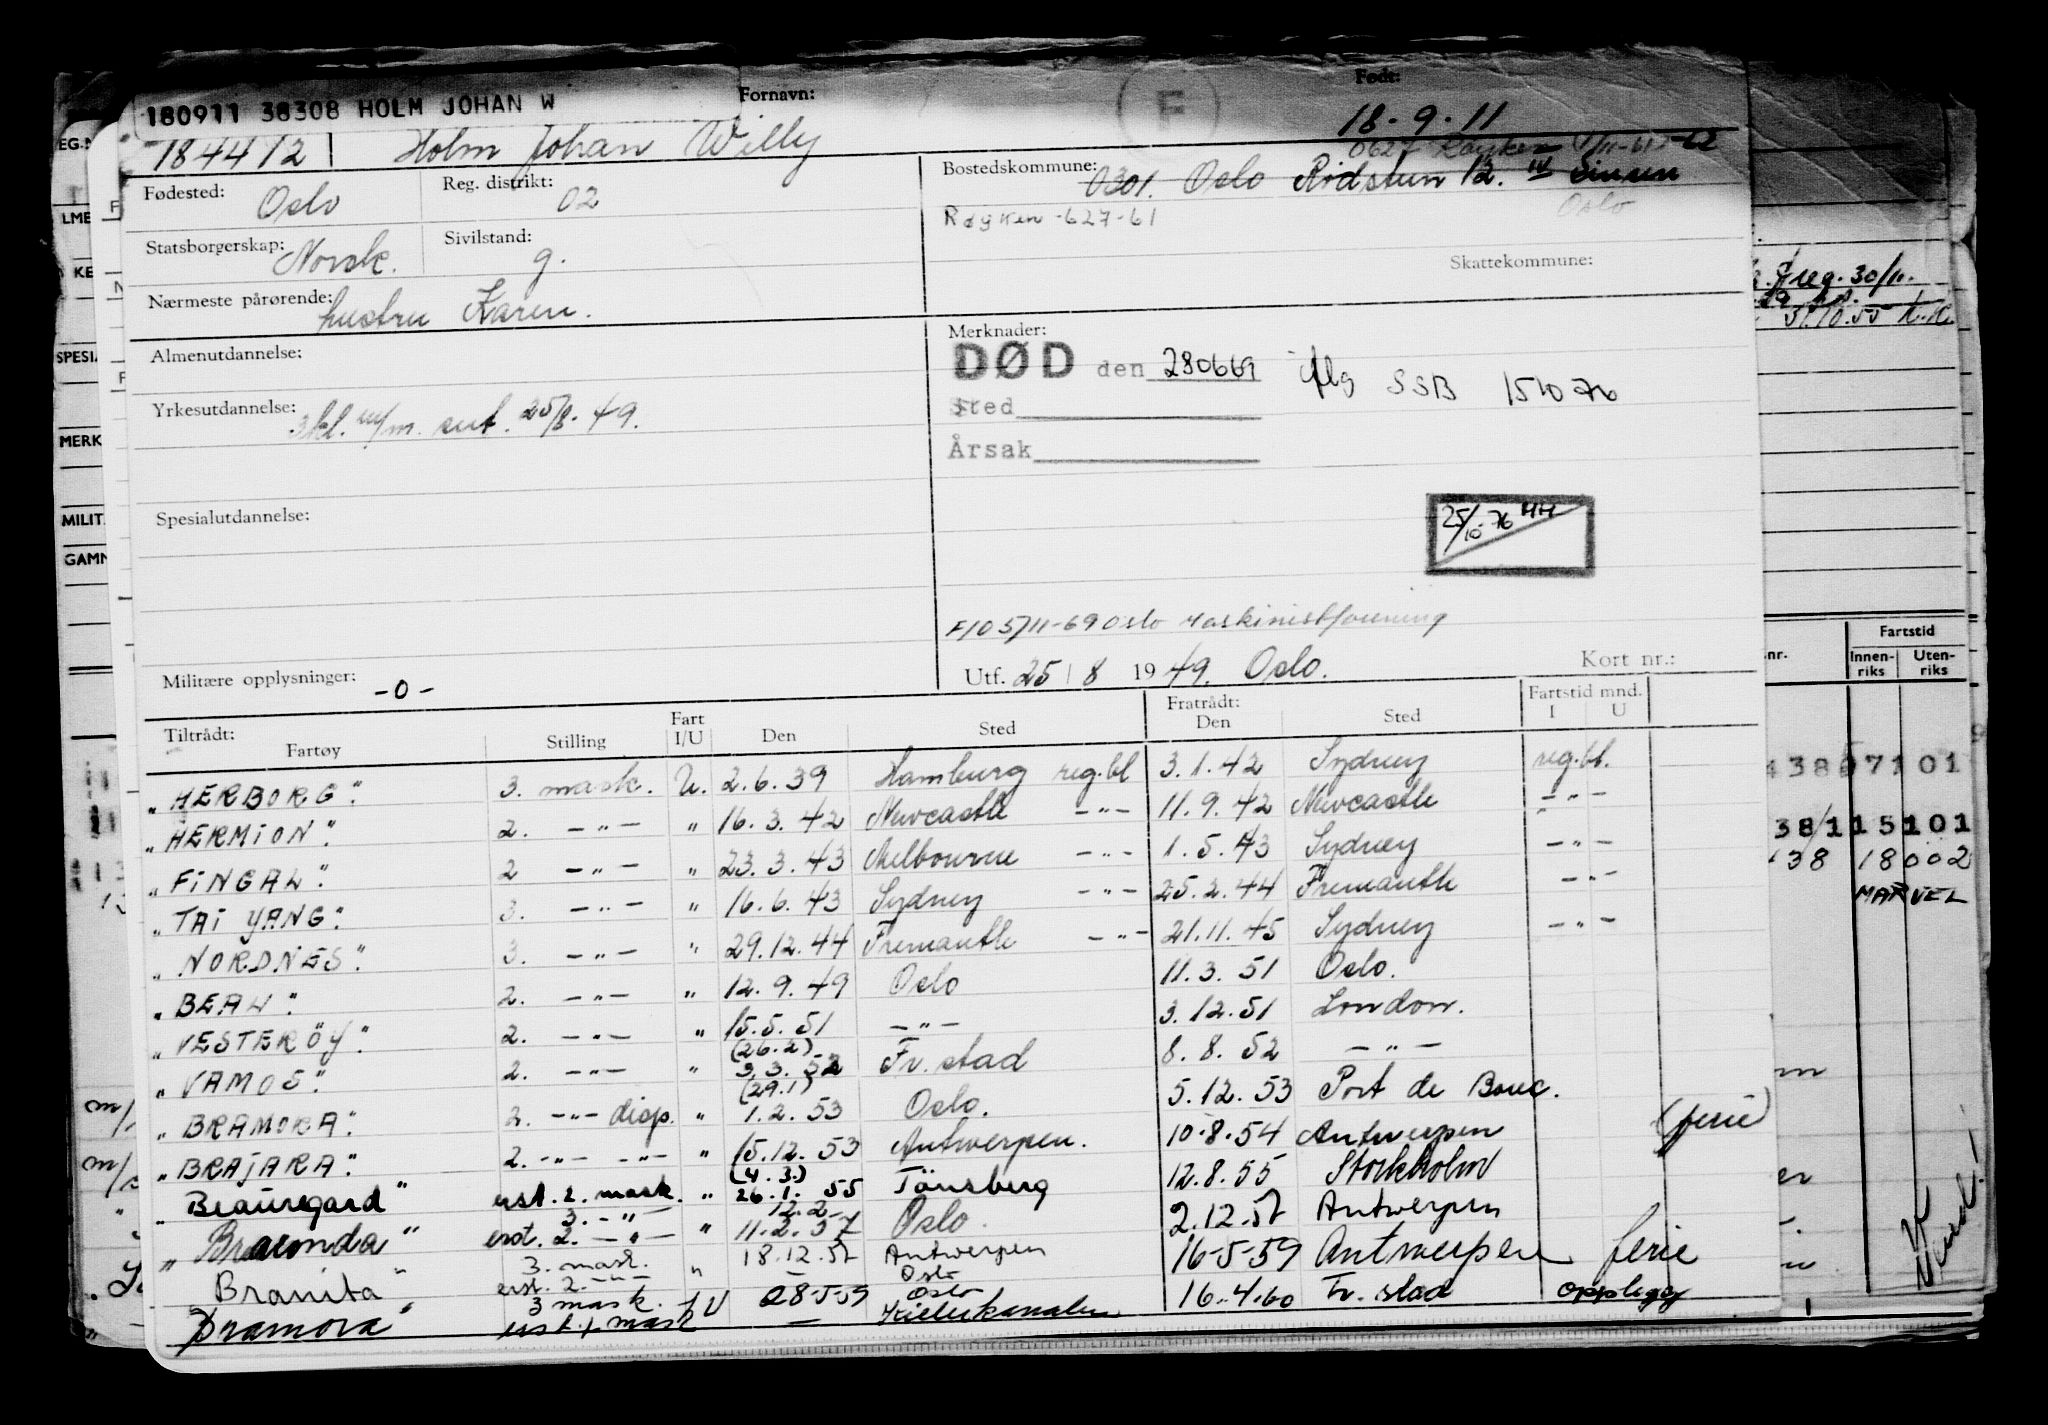 180911 38308 HOLM JOHAN W
Fornavn:
Født:
F
1844112
Holm Johan Willy
18-9-11
Fødested: Oslo
Reg. distrikt: 02
Bostedskommune: 0301. Oslo
0627 Røyken
Røyken -627-61
Oslo
Statsborgerskap: Norsk.
Sivilstand: g.
Skattekommune:
Nærmeste pårørende: hustru Karen.
Almenutdannelse:
Merknader:
DØD den 280669 iflg SSB 151076
Sted
Årsak
Yrkesutdannelse: 3kl. m/m. sert. 25/8-49.
Spesialutdannelse:
25/10-76 HH
F/O 5/11-69 Oslo Maskinistforening
Militære opplysninger: -0-
Utf. 25/8 1949. Oslo.
Kort nr.:
Tiltrådt: Fartøy Stilling Fart I/U Den Sted Fratrådt: Den Sted Fartstid mnd. I U
"HERBORG". 3. mask. U. 2.6.39 Hamburg reg.bl 3.1.42 Sydney reg.bl.
"HERMION". 2. -"- " 16.3.42 Newcastle -"- 11.9.42 Newcastle -"-
"FINGAL". 2 -"- " 23.3.43 Melbourne -"- 1.5.43 Sydney -"-
"TAI YANG". 3. -"- " 16.6.43 Sydney -"- 25.2.44 Fremantle -"-
"NORDNES". 3. -"- " 29.12.44 Fremantle -"- 21.11.45 Sydney -"-
"BEAU". 2. -"- " 12.9.49 Oslo 11.3.51 Oslo.
"VESTERÖY". 2. -"- " 15.5.51 -"- 3.12.51 London.
"VAMOS". 2. -"- " (26.2) 3.3.52 Fr.stad 8.8.52 -"-
"BRAMORA". 2. -"- disp. " (29.1) 1.2.53 Oslo. 5.12.53 Port de Bouc.
"BRAJARA". 2. -"- -"- " 15.12.53 Antwerpen. 10-8-54 Antwerpen (ferie)
"Beauregard" erst. 2. mask. " (4.3.) 26.1.55 Tönsberg 12.8.55 Stockholm
"Bracenda" 3. -"- erst. 2. -"- " 12.2- 11-2.57 Oslo. 2.12.57 Antwerpen
Branita" 3. mask. erst. 2. -"- " 18.12.57 Antwerpen Oslo 16-5-59 Antwerpen ferie
Bramora" 3 mask. erst. 1. mask U 28-5-59 Oslo Kielerkanalen 16.4.60 Fr.stad opplegg
EG.N
LME
KE
SPESIA
MERK
MILIT
GAMN
reg. 30/11.
31.10.55
nr.
Fartstid
Innenriks
Utenriks
43807101
38/115101
138 18002
MARVEL